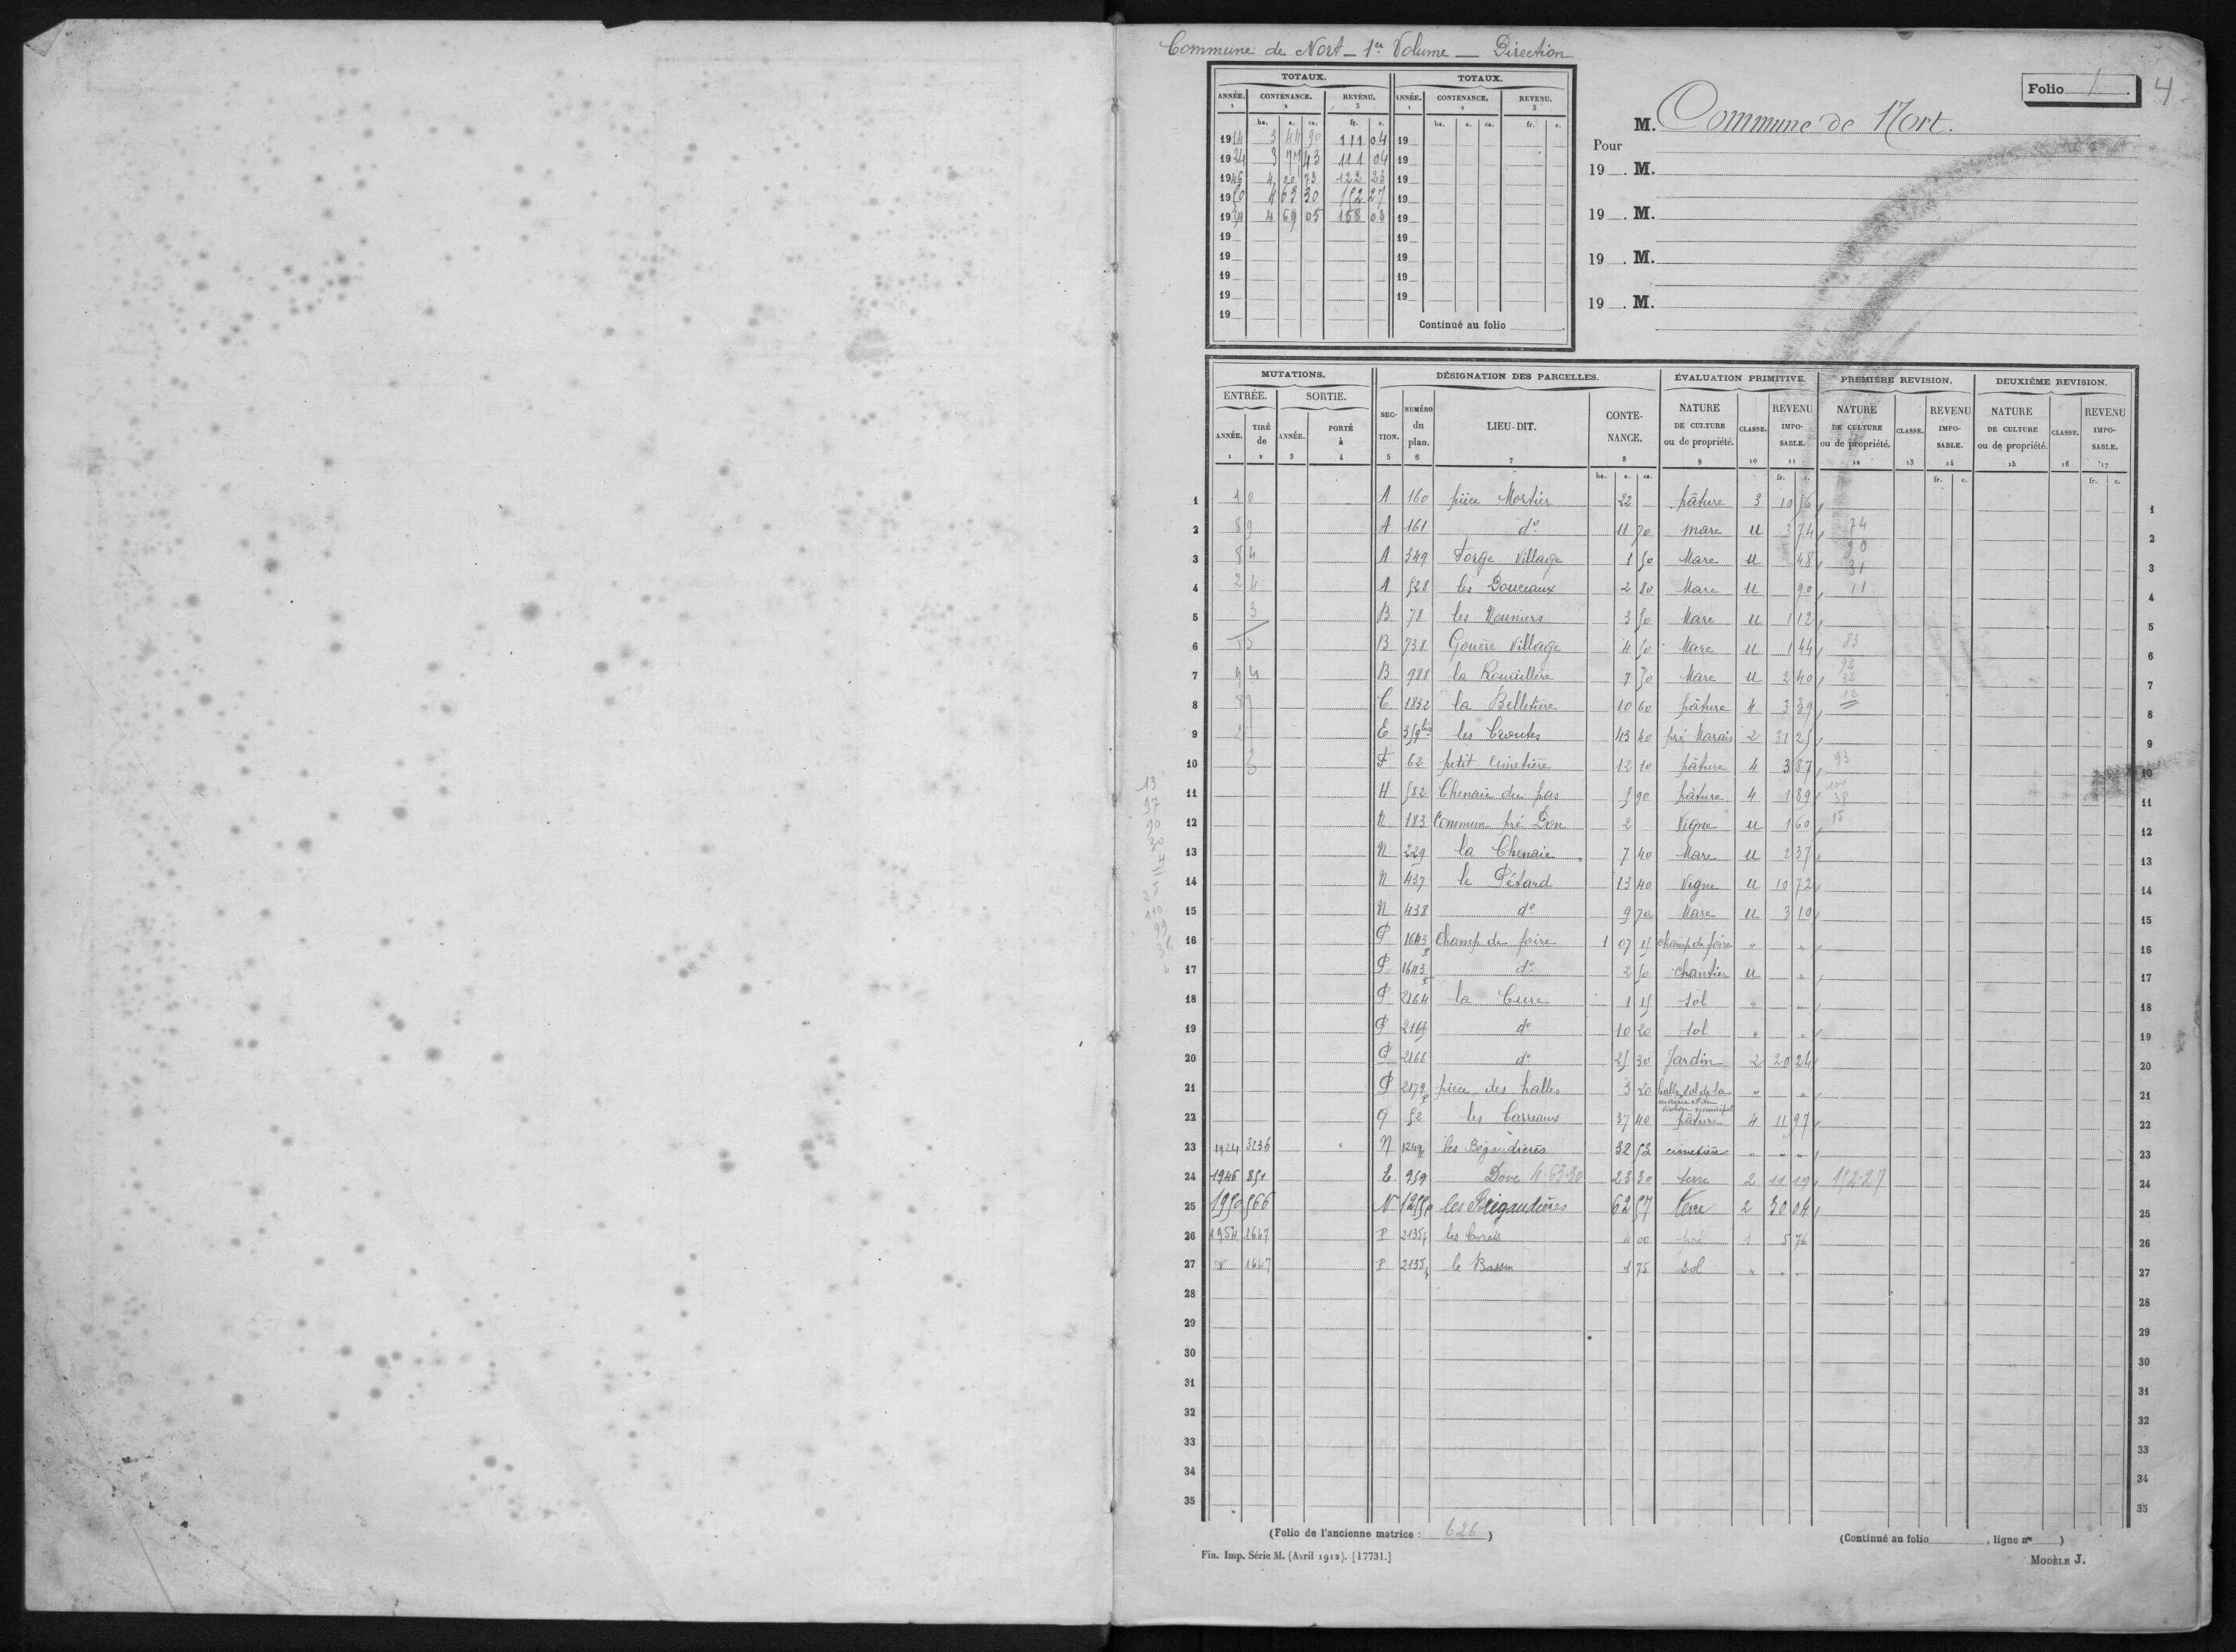 Commune de Nort - 1er Volume - Direction
TOTAUX. TOTAUX.
ANNÉE. CONTENANCE. REVENU. ANNÉE. CONTENANCE. REVENU.
1 2 3 1 2 3
ha. a. ca. fr. c. ha. a. ca. fr. c.
1914 3 44 90 111 04 19
1924 3 77 43 111 04 19
1946 4 00 73 122 23 19
1950 4 63 30 152 27 19
1954 4 69 05 158 03 19
19 19
19 19
19 19
19 19
19
Continué au folio
Folio 1. 4
M. Commune de Nort.
Pour
19 . M.
19 . M.
19 . M.
19 . M.
MUTATIONS. DÉSIGNATION DES PARCELLES. ÉVALUATION PRIMITIVE. PREMIÈRE REVISION. DEUXIÈME REVISION.
ENTRÉE. SORTIE.
ANNÉE. TIRÉ de ANNÉE. PORTÉ à SECTION. NUMÉRO du plan. LIEU-DIT. CONTENANCE. NATURE DE CULTURE ou de propriété. CLASSE. REVENU IMPOSABLE. NATURE DE CULTURE ou de propriété. CLASSE. REVENU IMPOSABLE. NATURE DE CULTURE ou de propriété. CLASSE. REVENU IMPOSABLE.
1 2 3 4 5 6 7 8 9 10 11 12 13 14 15 16 17
ha. a. ca. fr. c. fr. c. fr. c.
1 10 A 160 pièce Mortier 22 pâture 3 10 56 1
2 89 A 161 do 11 70 mare u 3 74 74 2
3 84 A 349 Forge Village 1 50 Mare u 48 3
4 24 A 528 les Douceaux 2 80 Mare u 90 11 4
5 3 B 78 les 3 50 Mare u 1 12 5
6 B 738 Gouère Village 4 50 Mare u 1 44 83 6
7 94 B 988 la 7 50 Mare u 2 40 92 32 7
8 C 1832 la Belletière 10 60 pâture 4 3 39 12 8
9 E 359 bis les Croutes 43 40 pré Marais 2 31 25 9
10 F 62 petit Cimetière 12 10 pâture 4 3 87 93 10
11 H 582 Chenaie du pas 5 90 pâture 4 1 89 38 11
12 N 183 Commun pré Don 2 Vigne u 1 60 15 12
13 N 229 la Chenaie 7 40 Mare u 2 37 13
14 N 437 le Pétard 13 40 Vigne u 10 72 14
15 N 438 do 9 70 Mare u 3 10 15
16 P 1643p Champ de foire 1 07 15 champ de foire " " 16
17 P 1643p do 2 50 chantier u " 17
18 P 2164 la Cure 1 15 sol " " 18
19 P 2165 do 10 20 sol " " 19
20 P 2166 do 25 30 Jardin 2 20 24 20
21 P 2179p pièce des halles 3 20 halle, sol de la mairie et du salon municipal " " 21
22 Q 52 les Carreaux 37 40 pâture 4 11 97 22
23 1924 3236 N les Bégaudières 32 53 cimetière " " " 23
24 1946 851 E 959 Dove 4-63-30 23 30 terre 2 11 19 152-27 24
25 1950 566 N 1255p les Bégaudières 62 57 terre 2 30 04 25
26 1954 1647 P 2135p les 4 00 pré 1 5 76 26
27 1647 P 2135p le Bassin 1 75 sol " " 27
28 28
29 29
30 30
31 31
32 32
33 33
34 34
35 35
(Folio de l'ancienne matrice : 626 ) (Continué au folio , ligne no )
Fin. Imp. Série M. (Avril 1912). [17731.] MODÈLE J.